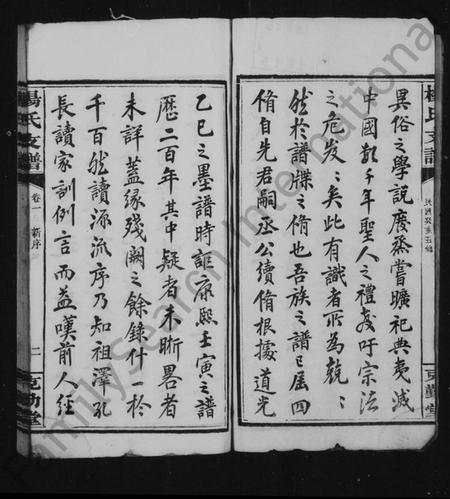 異俗之學說廢烝嘗曠祀典夷滅
中國數千年聖人之禮教吁宗法
之危岌岌矣此有識者所為兢兢
然於譜牒之脩也吾族之譜已屆四
脩自先君嗣丞公續脩根據道光
楊氏支譜
東勤堂
乙巳之墨譜時距康熙壬寅之譜
歷二百年其中疑者未晰畧者
未詳蓋緣殘闕之餘錄什一於
千百然讀源流序乃知祖澤孔
長讀家訓例言而益嘆前人經
楊氏支譜
卷一 新序
二
東勤堂
FamilySearch International